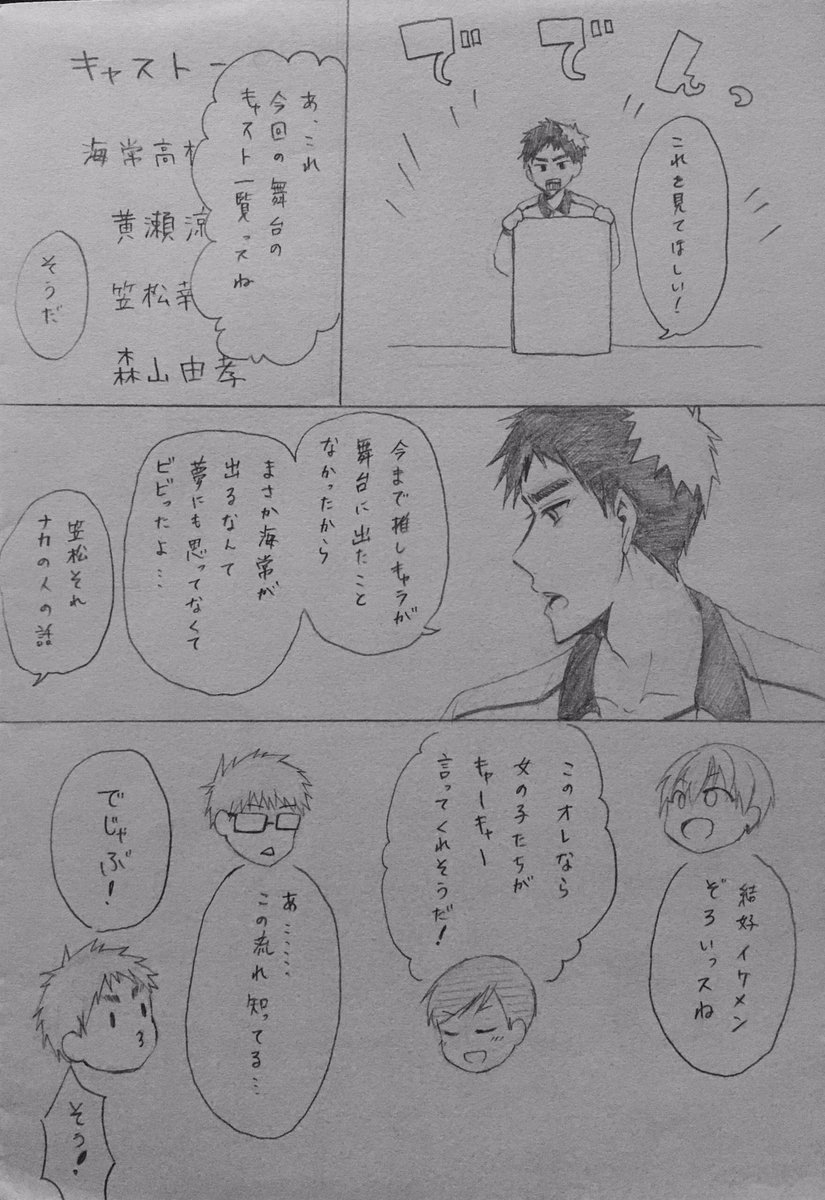 で゛
で゛
ん
これを見てほしい!
あ、これ
今回の舞台の
キャスト一覧っスね
キャスト一
海常高校
黄瀬涼
笠松幸
森山由孝
そうだ
今まで推しキャラが
舞台に出たこと
なかったから
まさか海常が
出るなんて
夢にも思ってなくて
ビビったよ…
笠松それ
ナカの人の話
結好イケメン
ぞろいっスね
このオレなら
女の子たちが
キャーキャー
言ってくれそうだ!
あ……
この流れ知ってる…
でじゃぶ!
そう!